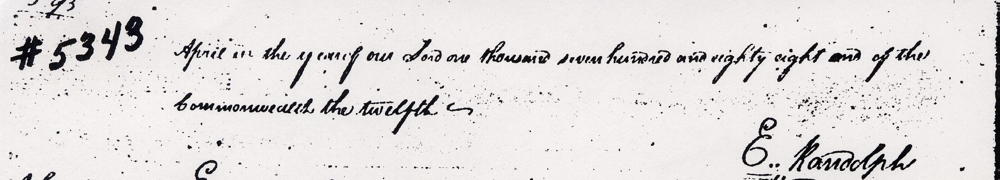 #5343
April in the year of our Lord one thousand seven hundred and eighty eight and of the
Commonwealth the twelfth
E.. Randolph